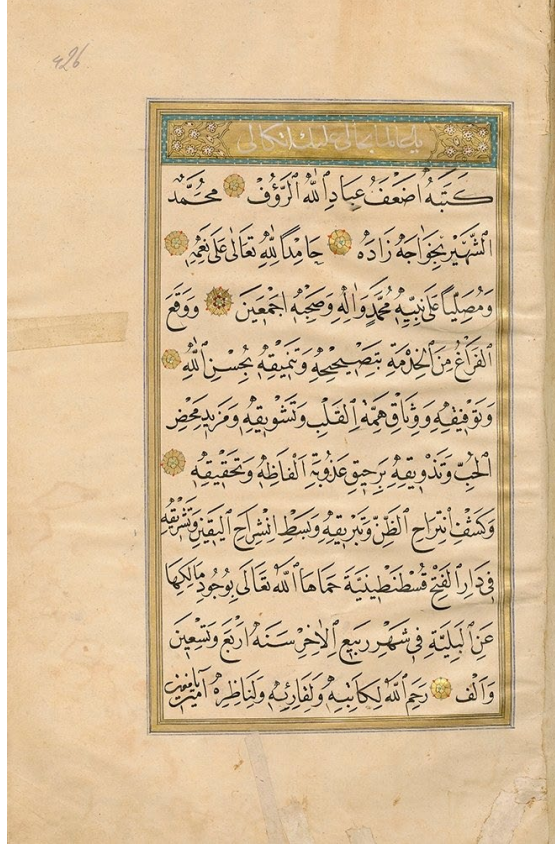 426
كَتَبَهُ اَضْعَفُ عِبَادِ اللّٰهِ الرَّؤُفِ مُحَمَّد
الشَّهِيْرُ بِخَوَاجَهْ زَادَهْ حَامِدًا لِلّٰهِ تَعَالٰى عَلٰى نِعَمِهٖ
وَمُصَلِّيًا عَلٰى نَبِيِّهٖ مُحَمَّدٍ وَاٰلِهٖ وَصَحْبِهٖ اَجْمَعِينَ وَوَقَعَ
الْفَرَاغُ مِنَ الْخِدْمَةِ بِتَصْحِيحِهٖ وَتَنْمِيقِهٖ بِحُسْنِ اللّٰهِ
وَتَوْفِيقِهٖ وَوِثَاقِ هِمَّةِ الْقَلْبِ وَتَشْوِيقِهٖ وَمَزِيدِ مَحْضِ
الْحُبِّ وَتَذْوِيقِهٖ بِرَحِيقِ عُذُوبَةِ اَلْفَاظِهٖ وَتَحْقِيقِهٖ
وَكَشْفِ اَتْرَاحِ الظَّنِّ وَتَبْرِيقِهٖ وَبَسْطِ انْشِرَاحِ الْيَقِينِ وَتَشْرِيقِهٖ
فِي دَارِ الْفَتْحِ قُسْطَنْطِينِيَّةَ حَمَاهَا اللّٰهُ تَعَالٰى بِوُجُودِ مَالِكِهَا
عَنِ الْبَلِيَّةِ فِي شَهْرِ رَبِيعِ الْاٰخِرِ سَنَةَ اَرْبَعَ وَتِسْعِينَ
وَاَلْف رَحِمَ اللّٰهُ لِكَاتِبِهٖ وَلِقَارِئِهٖ وَلِنَاظِرِهٖ اٰمِينَ